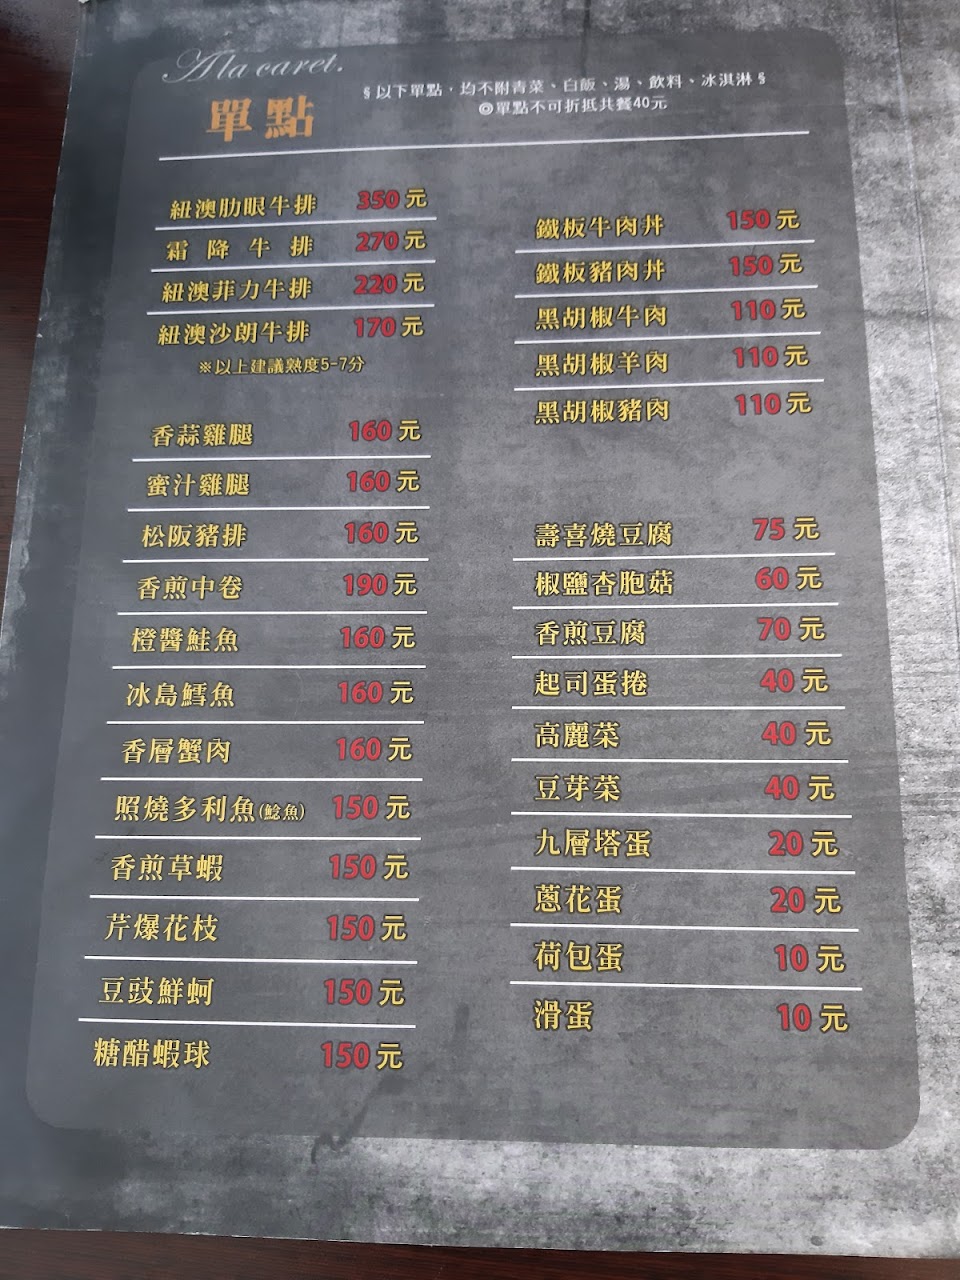 A la caret.
單點
§以下單點，均不附青菜、白飯、湯、飲料、冰淇淋§
◎單點不可折抵共餐40元
紐澳肋眼牛排 350元
霜降牛排 270元
紐澳菲力牛排 220元
紐澳沙朗牛排 170元
※以上建議熟度5-7分
香蒜雞腿 160元
蜜汁雞腿 160元
松阪豬排 160元
香煎中卷 190元
橙醬鮭魚 160元
冰島鱈魚 160元
香層蟹肉 160元
照燒多利魚(鯰魚) 150元
香煎草蝦 150元
芹爆花枝 150元
豆豉鮮蚵 150元
糖醋蝦球 150元
鐵板牛肉丼 150元
鐵板豬肉丼 150元
黑胡椒牛肉 110元
黑胡椒羊肉 110元
黑胡椒豬肉 110元
壽喜燒豆腐 75元
椒鹽杏胞菇 60元
香煎豆腐 70元
起司蛋捲 40元
高麗菜 40元
豆芽菜 40元
九層塔蛋 20元
蔥花蛋 20元
荷包蛋 10元
滑蛋 10元